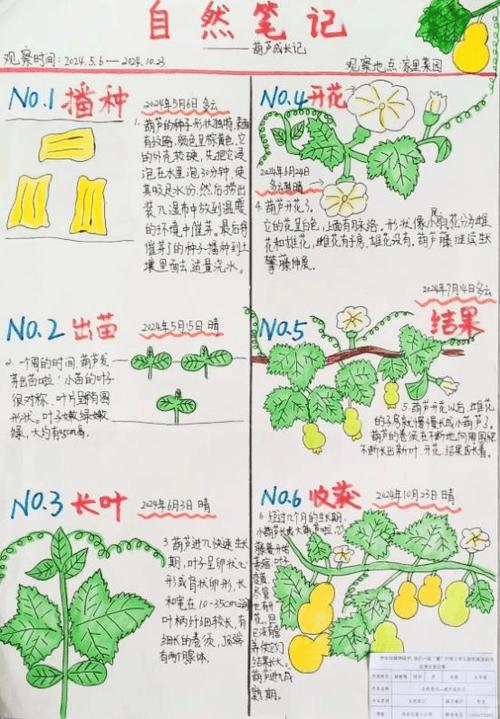 自然笔记
——葫芦成长记
观察时间:2024.5.6—2024.10.23
观察地点:家里菜园
NO.1 播种
2024年5月6日 多云
1.葫芦的种子形状独特,表面
有纹路,颜色呈棕黄色,它
的外壳较硬,先把它浸
泡在水里泡30分钟,使
其吸足水份,然后捞出
装入湿布中放到温暖
的环境中催芽。最后将
催芽了的种子播种到土
壤里面去,适量浇水。
NO.2 出苗
2024年5月15日 晴
2.一周的时间,葫芦发
芽出苗啦!小苗的叶子
很对称,叶片呈椭圆
形状。叶子嫩绿嫩
绿,大约有5cm高。
NO.3 长叶
2024年6月3日 晴
3.葫芦进入快速生长
期,叶子呈卵状心
形或肾状卵形,长
和宽在10-35cm之间
叶柄纤细较长,有
细长的卷须,顶端
有两个腺体。
NO.4 开花
2024年6月24日
多云转晴
4.葫芦开花了。
它的花呈白色,上面有脉络。形状像小喇叭花分为雌
花和雄花,雌花有子房,雄花没有,葫芦藤继续生长
攀藤伸展。
NO.5 结果
2024年7月4日 多云
5.葫芦开花以后,雌花
的子房就慢慢长成小葫芦了。
葫芦的卷须在不断地向周围爬
不断长出新叶,开花,结果成长着。
NO.6 收获
2024年10月23日 晴
6.经过几个月的生长期,
小葫芦长成大葫芦啦。
藤蔓开始
萎缩,叶子
变黄,
尽管
也有开
花,但
已没能
养供它
们结果
长大。
葫芦进入成
熟期。